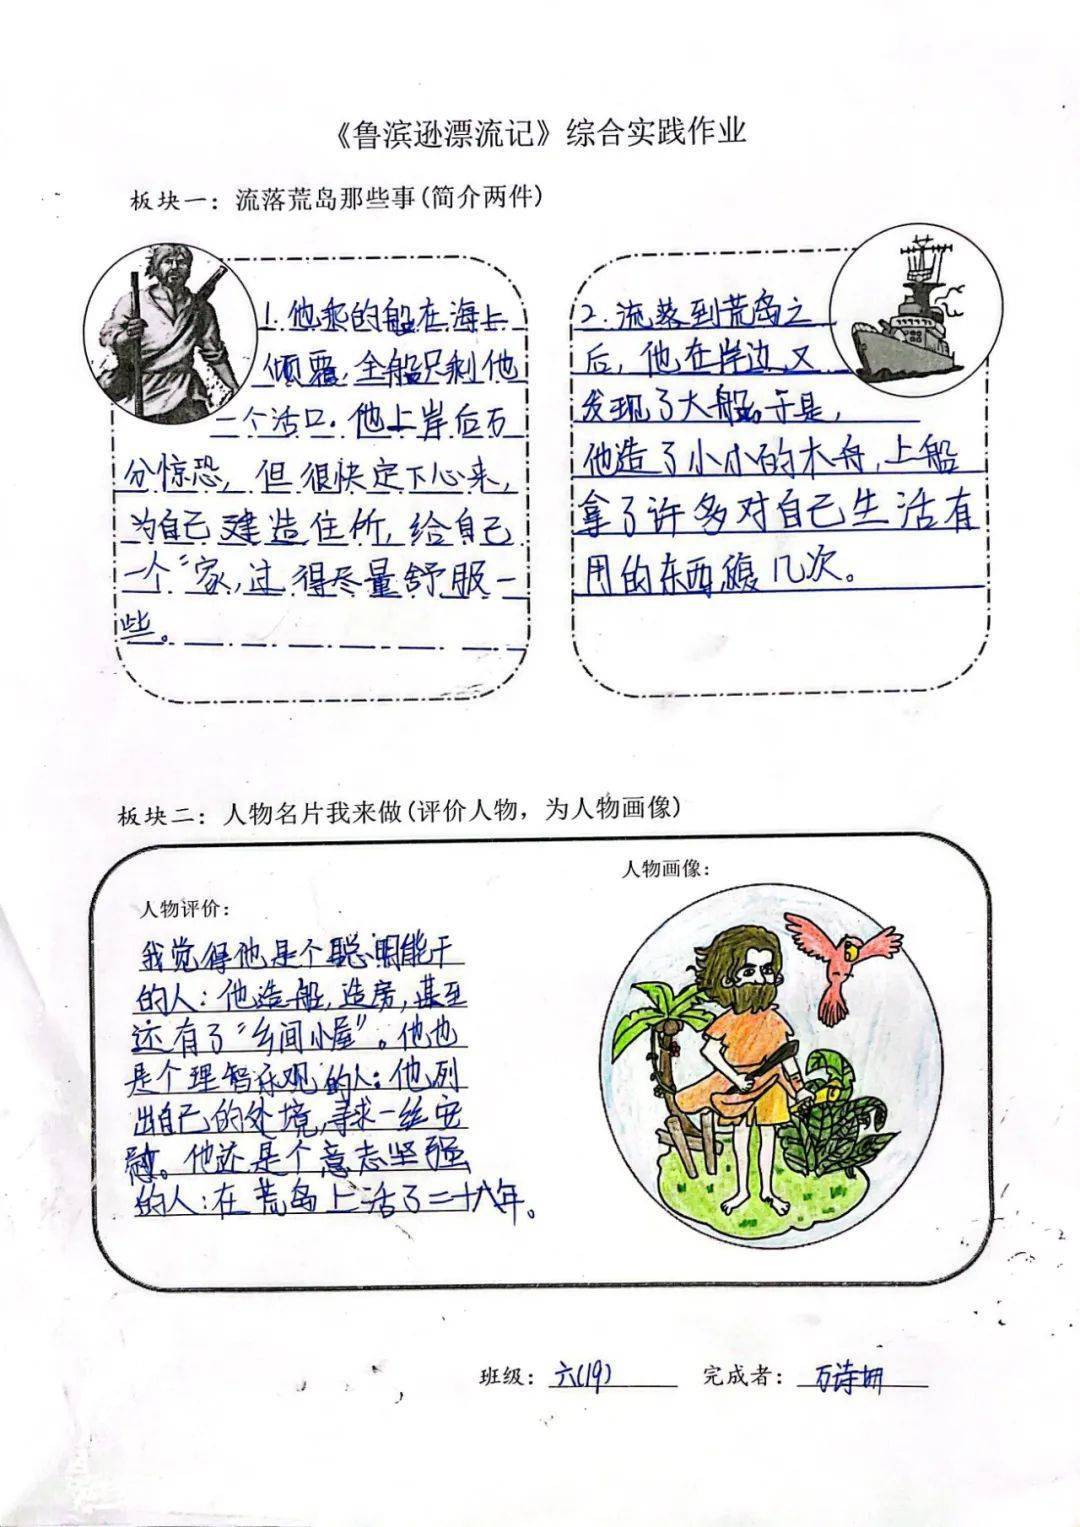 《鲁滨逊漂流记》综合实践作业
板块一：流落荒岛那些事(简介两件)
1.他乘的船在海上
倾覆,全船只剩他
一个活口.他上岸后万
分惊恐,但很快定下心来,
为自己建造住所,给自己
一个"家,过得尽量舒服一
些。
2.流落到荒岛之
后,他在岸边又
发现了大船。于是,
他造了小小的木舟,上船
拿了许多对自己生活有
用的东西 几次。
板块二：人物名片我来做(评价人物，为人物画像)
人物画像：
人物评价：
我觉得他是个聪明能干
的人:他造船,造房,甚至
还有了"乡间小屋"。他也
是个理智乐观的人:他列
出自己的处境,寻求一丝安
慰。他还是个意志坚强
的人:在荒岛上活了二十八年。
班级：六(19) 完成者：万诗妍